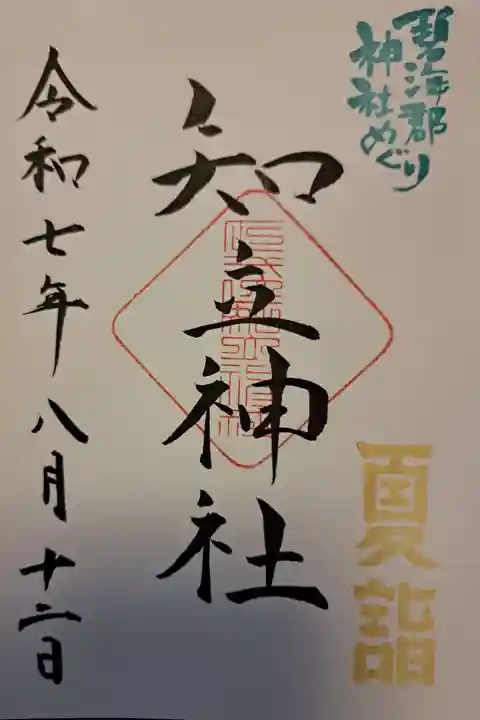 碧海郡
神社めぐり
夏詣
知立神社
令和七年八月十二日